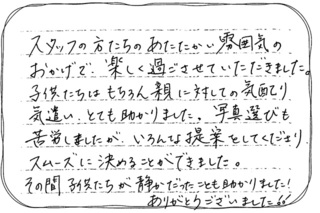 スタッフの方たちのあたたかい雰囲気の
おかげで、楽しく過ごさせていただきました。
子供たちはもちろん親に対しての気配り
気遣い、とても助かりました。写真選びも
苦労しましたが、いろんな提案をしてくださり
スムーズに決めることができました。
その間子供たちが静かだったことも助かりました!
ありがとうございました!!